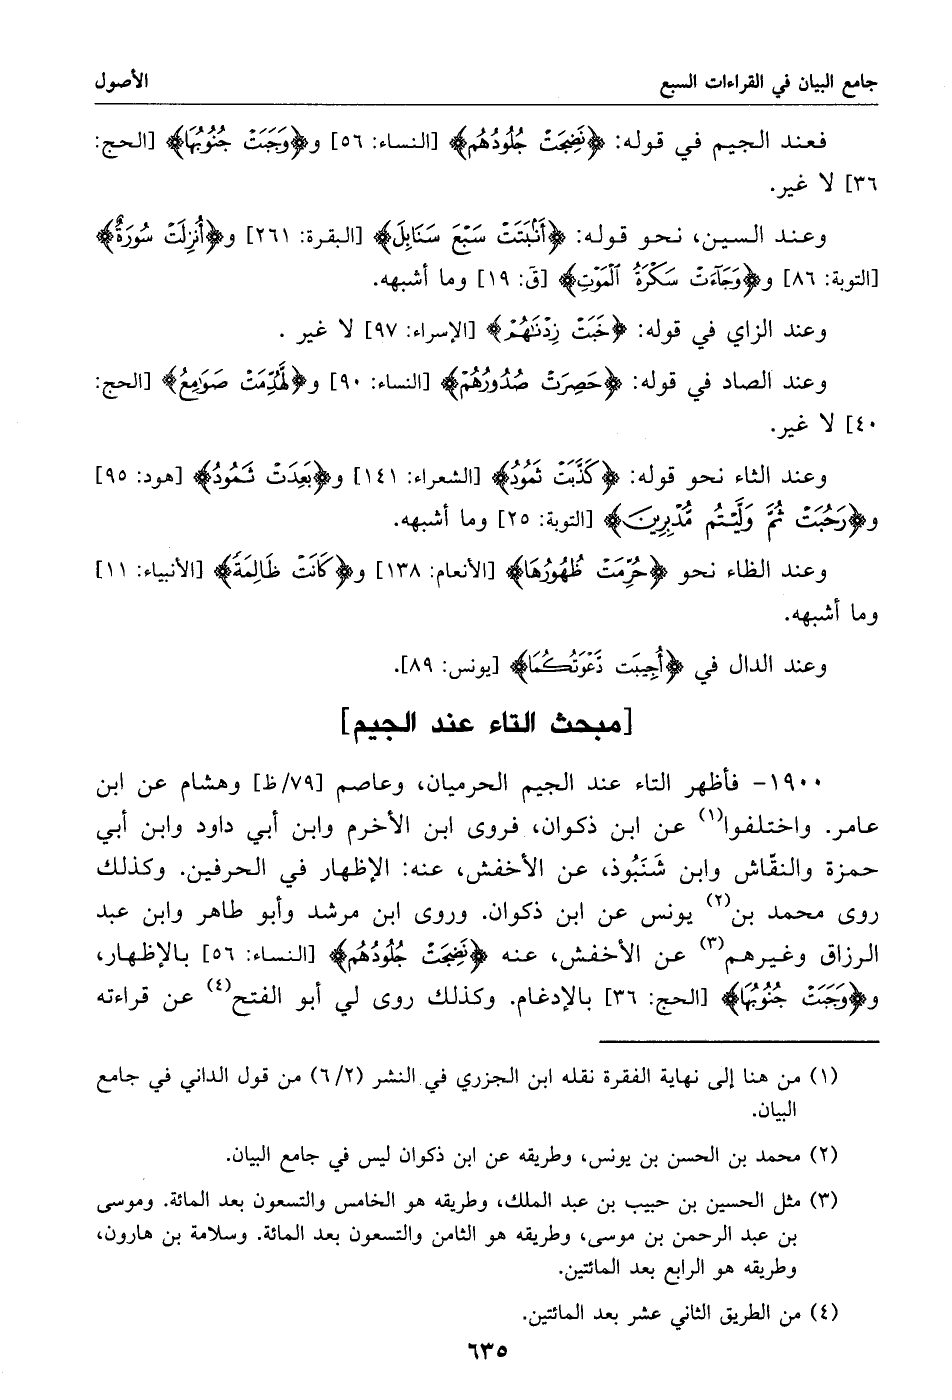 جامع البيان في القراءات السبع الأصول
فعند الجيم في قوله: ﴿نَضِجَتْ جُلُودُهُم﴾ [النساء: ٥٦] و﴿وَجَبَتْ جُنُوبُهَا﴾ [الحج:
٣٦] لا غير.
وعند السين، نحو قوله: ﴿أَنۢبَتَتْ سَبْعَ سَنَابِلَ﴾ [البقرة: ٢٦١] و﴿أُنزِلَتْ سُورَةٌ﴾
[التوبة: ٨٦] و﴿وَجَآءَتْ سَكْرَةُ ٱلْمَوْتِ﴾ [قۤ: ١٩] وما أشبهه.
وعند الزاي في قوله: ﴿خَبَتْ زِدْنَٰهُمْ﴾ [الإسراء: ٩٧] لا غير .
وعند الصاد في قوله: ﴿حَصِرَتْ صُدُورُهُمْ﴾ [النساء: ٩٠] و﴿لَّهُدِّمَتْ صَوَٰمِعُ﴾ [الحج:
٤٠] لا غير.
وعند الثاء نحو قوله: ﴿كَذَّبَتْ ثَمُودُ﴾ [الشعراء: ١٤١] و﴿بَعِدَتْ ثَمُودُ﴾ [هود: ٩٥]
و﴿رَحُبَتْ ثُمَّ وَلَّيْتُم مُّدْبِرِينَ﴾ [التوبة: ٢٥] وما أشبهه.
وعند الظاء نحو ﴿حُرِّمَتْ ظُهُورُهَا﴾ [الأنعام: ١٣٨] و﴿كَانَتْ ظَالِمَةً﴾ [الأنبياء: ١١]
وما أشبهه.
وعند الدال في ﴿أُجِيبَت دَّعْوَتُكُمَا﴾ [يونس: ٨٩].
[مبحث التاء عند الجيم]
١٩٠٠- فأظهر التاء عند الجيم الحرميان، وعاصم [٧٩/ظ] وهشام عن ابن
عامر. واختلفوا(١) عن ابن ذكوان، فروى ابن الأخرم وابن أبي داود وابن أبي
حمزة والنقّاش وابن شَنَبُوذ، عن الأخفش، عنه: الإظهار في الحرفين. وكذلك
روى محمد بن(٢) يونس عن ابن ذكوان. وروى ابن مرشد وأبو طاهر وابن عبد
الرزاق وغيرهم(٣) عن الأخفش، عنه ﴿نَضِجَتْ جُلُودُهُم﴾ [النساء: ٥٦] بالإظهار،
و﴿وَجَبَتْ جُنُوبُهَا﴾ [الحج: ٣٦] بالإدغام. وكذلك روى لي أبو الفتح(٤) عن قراءته
(١) من هنا إلى نهاية الفقرة نقله ابن الجزري في النشر (٦/٢) من قول الداني في جامع
البيان.
(٢) محمد بن الحسن بن يونس، وطريقه عن ابن ذكوان ليس في جامع البيان.
(٣) مثل الحسين بن حبيب بن عبد الملك، وطريقه هو الخامس والتسعون بعد المائة. وموسى
بن عبد الرحمن بن موسى، وطريقه هو الثامن والتسعون بعد المائة. وسلامة بن هارون،
وطريقه هو الرابع بعد المائتين.
(٤) من الطريق الثاني عشر بعد المائتين.
٦٣٥